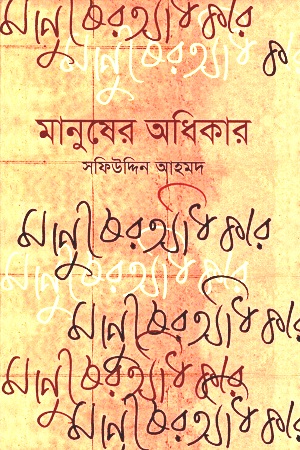 মানুষের অধিকার
মানুষের অধিকার
মানুষের অধিকার
সফিউদ্দিন আহমদ
মানুষের অধিকার
মানুষের অধিকার
মানুষের অধিকার
মানুষের অধিকার
মানুষের অধিকার